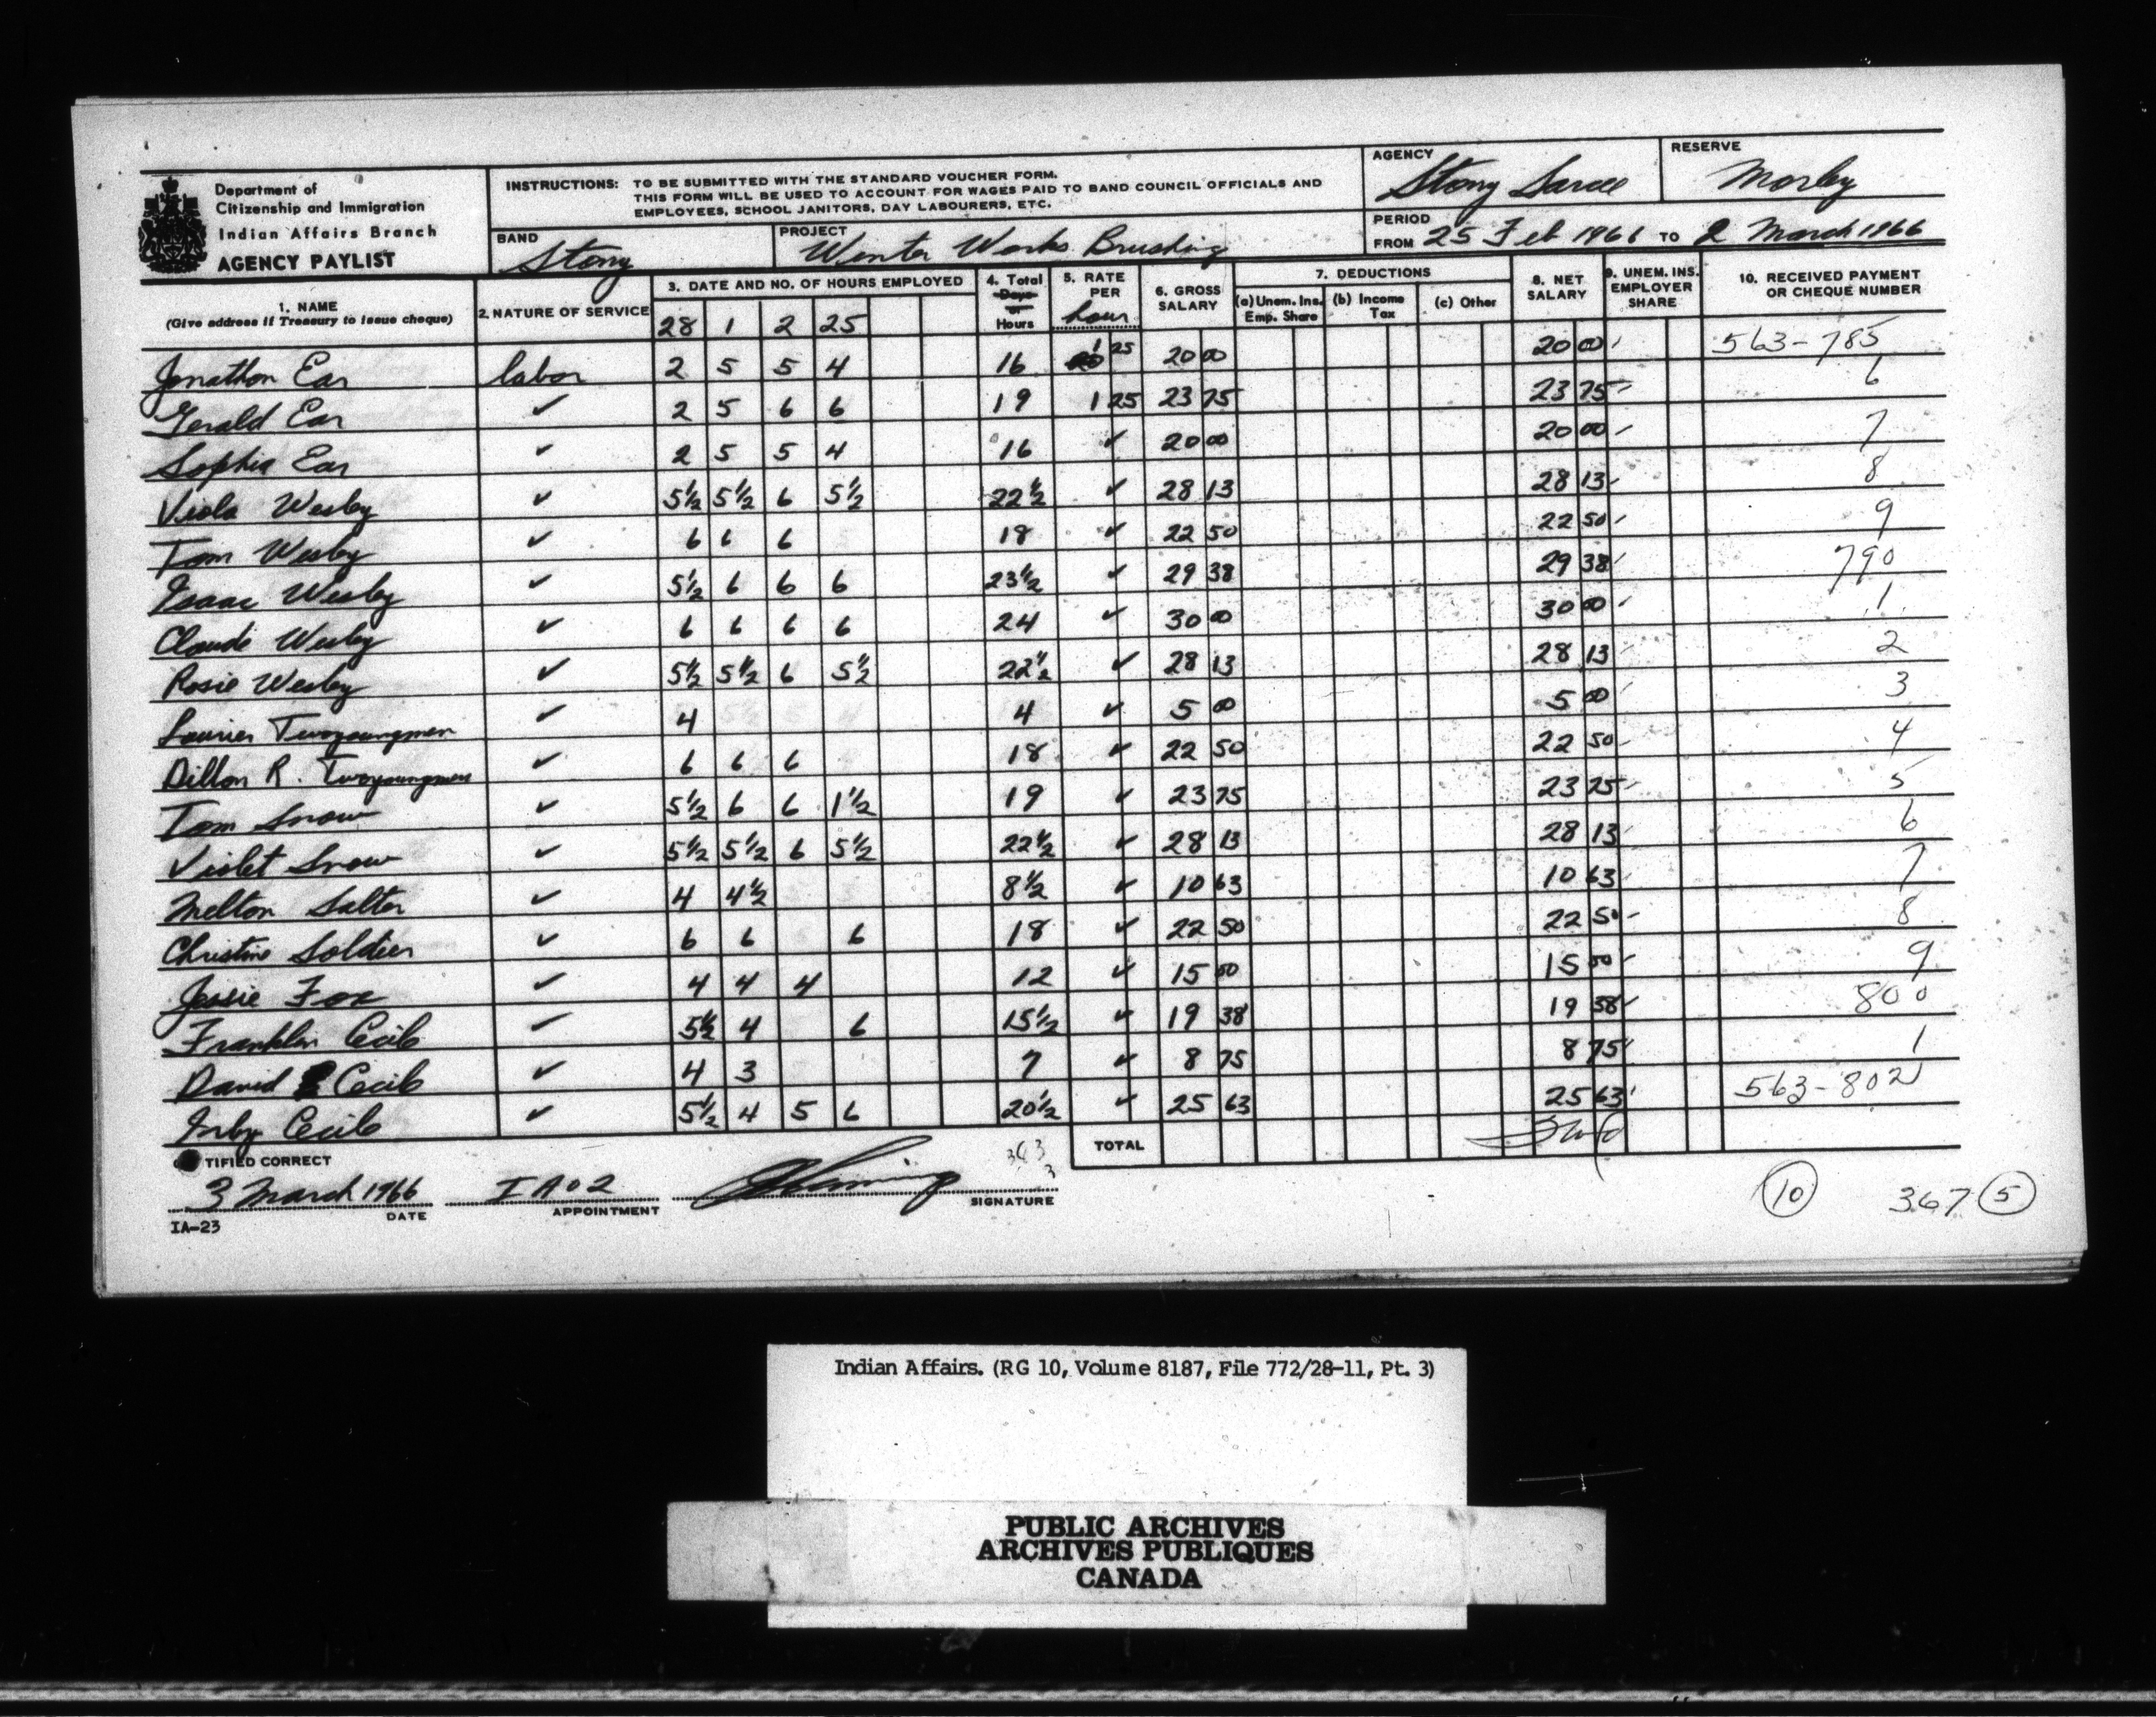 Department of
Citizenship and Immigration
Indian Affairs Branch
AGENCY PAYLIST
INSTRUCTIONS: TO BE SUBMITTED WITH THE STANDARD VOUCHER FORM.
THIS FORM WILL BE USED TO ACCOUNT FOR WAGES PAID TO BAND COUNCIL OFFICIALS AND
EMPLOYEES, SCHOOL JANITORS, DAY LABOURERS, ETC.
AGENCY Stony Sarcee
RESERVE Morley
BAND Stony
PROJECT Winter Works Brushing
PERIOD
FROM 25 Feb 1966 TO 2 March 1966
1. NAME
(Give address if Treasury to issue cheque)
2. NATURE OF SERVICE
3. DATE AND NO. OF HOURS EMPLOYED
28 1 2 25
4. Total Days or Hours
5. RATE PER hour
6. GROSS SALARY
7. DEDUCTIONS
(a) Unem. Ins. Emp. Share
(b) Income Tax
(c) Other
8. NET SALARY
9. UNEM. INS. EMPLOYER SHARE
10. RECEIVED PAYMENT OR CHEQUE NUMBER
Jonathon Ear labor 2 5 5 4 16 1 25 20 00 20 00 563-785
Gerald Ear ✓ 2 5 6 6 19 1 25 23 75 23 75 6
Sophia Ear ✓ 2 5 5 4 16 ✓ 20 00 20 00 7
Viola Wesley ✓ 5½ 5½ 6 5½ 22½ ✓ 28 13 28 13 8
Tom Wesley ✓ 6 6 6 18 ✓ 22 50 22 50 9
Isaac Wesley ✓ 5½ 6 6 6 23½ ✓ 29 38 29 38 790
Claude Wesley ✓ 6 6 6 6 24 ✓ 30 00 30 00 1
Rosie Wesley ✓ 5½ 5½ 6 5½ 22½ ✓ 28 13 28 13 2
Laurier Twoyoungmen ✓ 4 4 ✓ 5 00 5 00 3
Dillon R. Twoyoungmen ✓ 6 6 6 18 ✓ 22 50 22 50 4
Tom Snow ✓ 5½ 6 6 1½ 19 ✓ 23 75 23 75 5
Violet Snow ✓ 5½ 5½ 6 5½ 22½ ✓ 28 13 28 13 6
Melton Salter ✓ 4 4½ 8½ ✓ 10 63 10 63 7
Christine Soldier ✓ 6 6 6 18 ✓ 22 50 22 50 8
Jessie Fox ✓ 4 4 4 12 ✓ 15 00 15 00 9
Franklin Cecil ✓ 5½ 4 6 15½ ✓ 19 38 19 38 800
David Cecil ✓ 4 3 7 ✓ 8 75 8 75 1
Irby Cecil ✓ 5½ 4 5 6 20½ ✓ 25 63 25 63 563-802
TOTAL
TIFIED CORRECT
3 March 1966 IA02
DATE APPOINTMENT SIGNATURE
IA-23
10 367 5
Indian Affairs. (RG 10, Volume 8187, File 772/28-11, Pt. 3)
PUBLIC ARCHIVES
ARCHIVES PUBLIQUES
CANADA